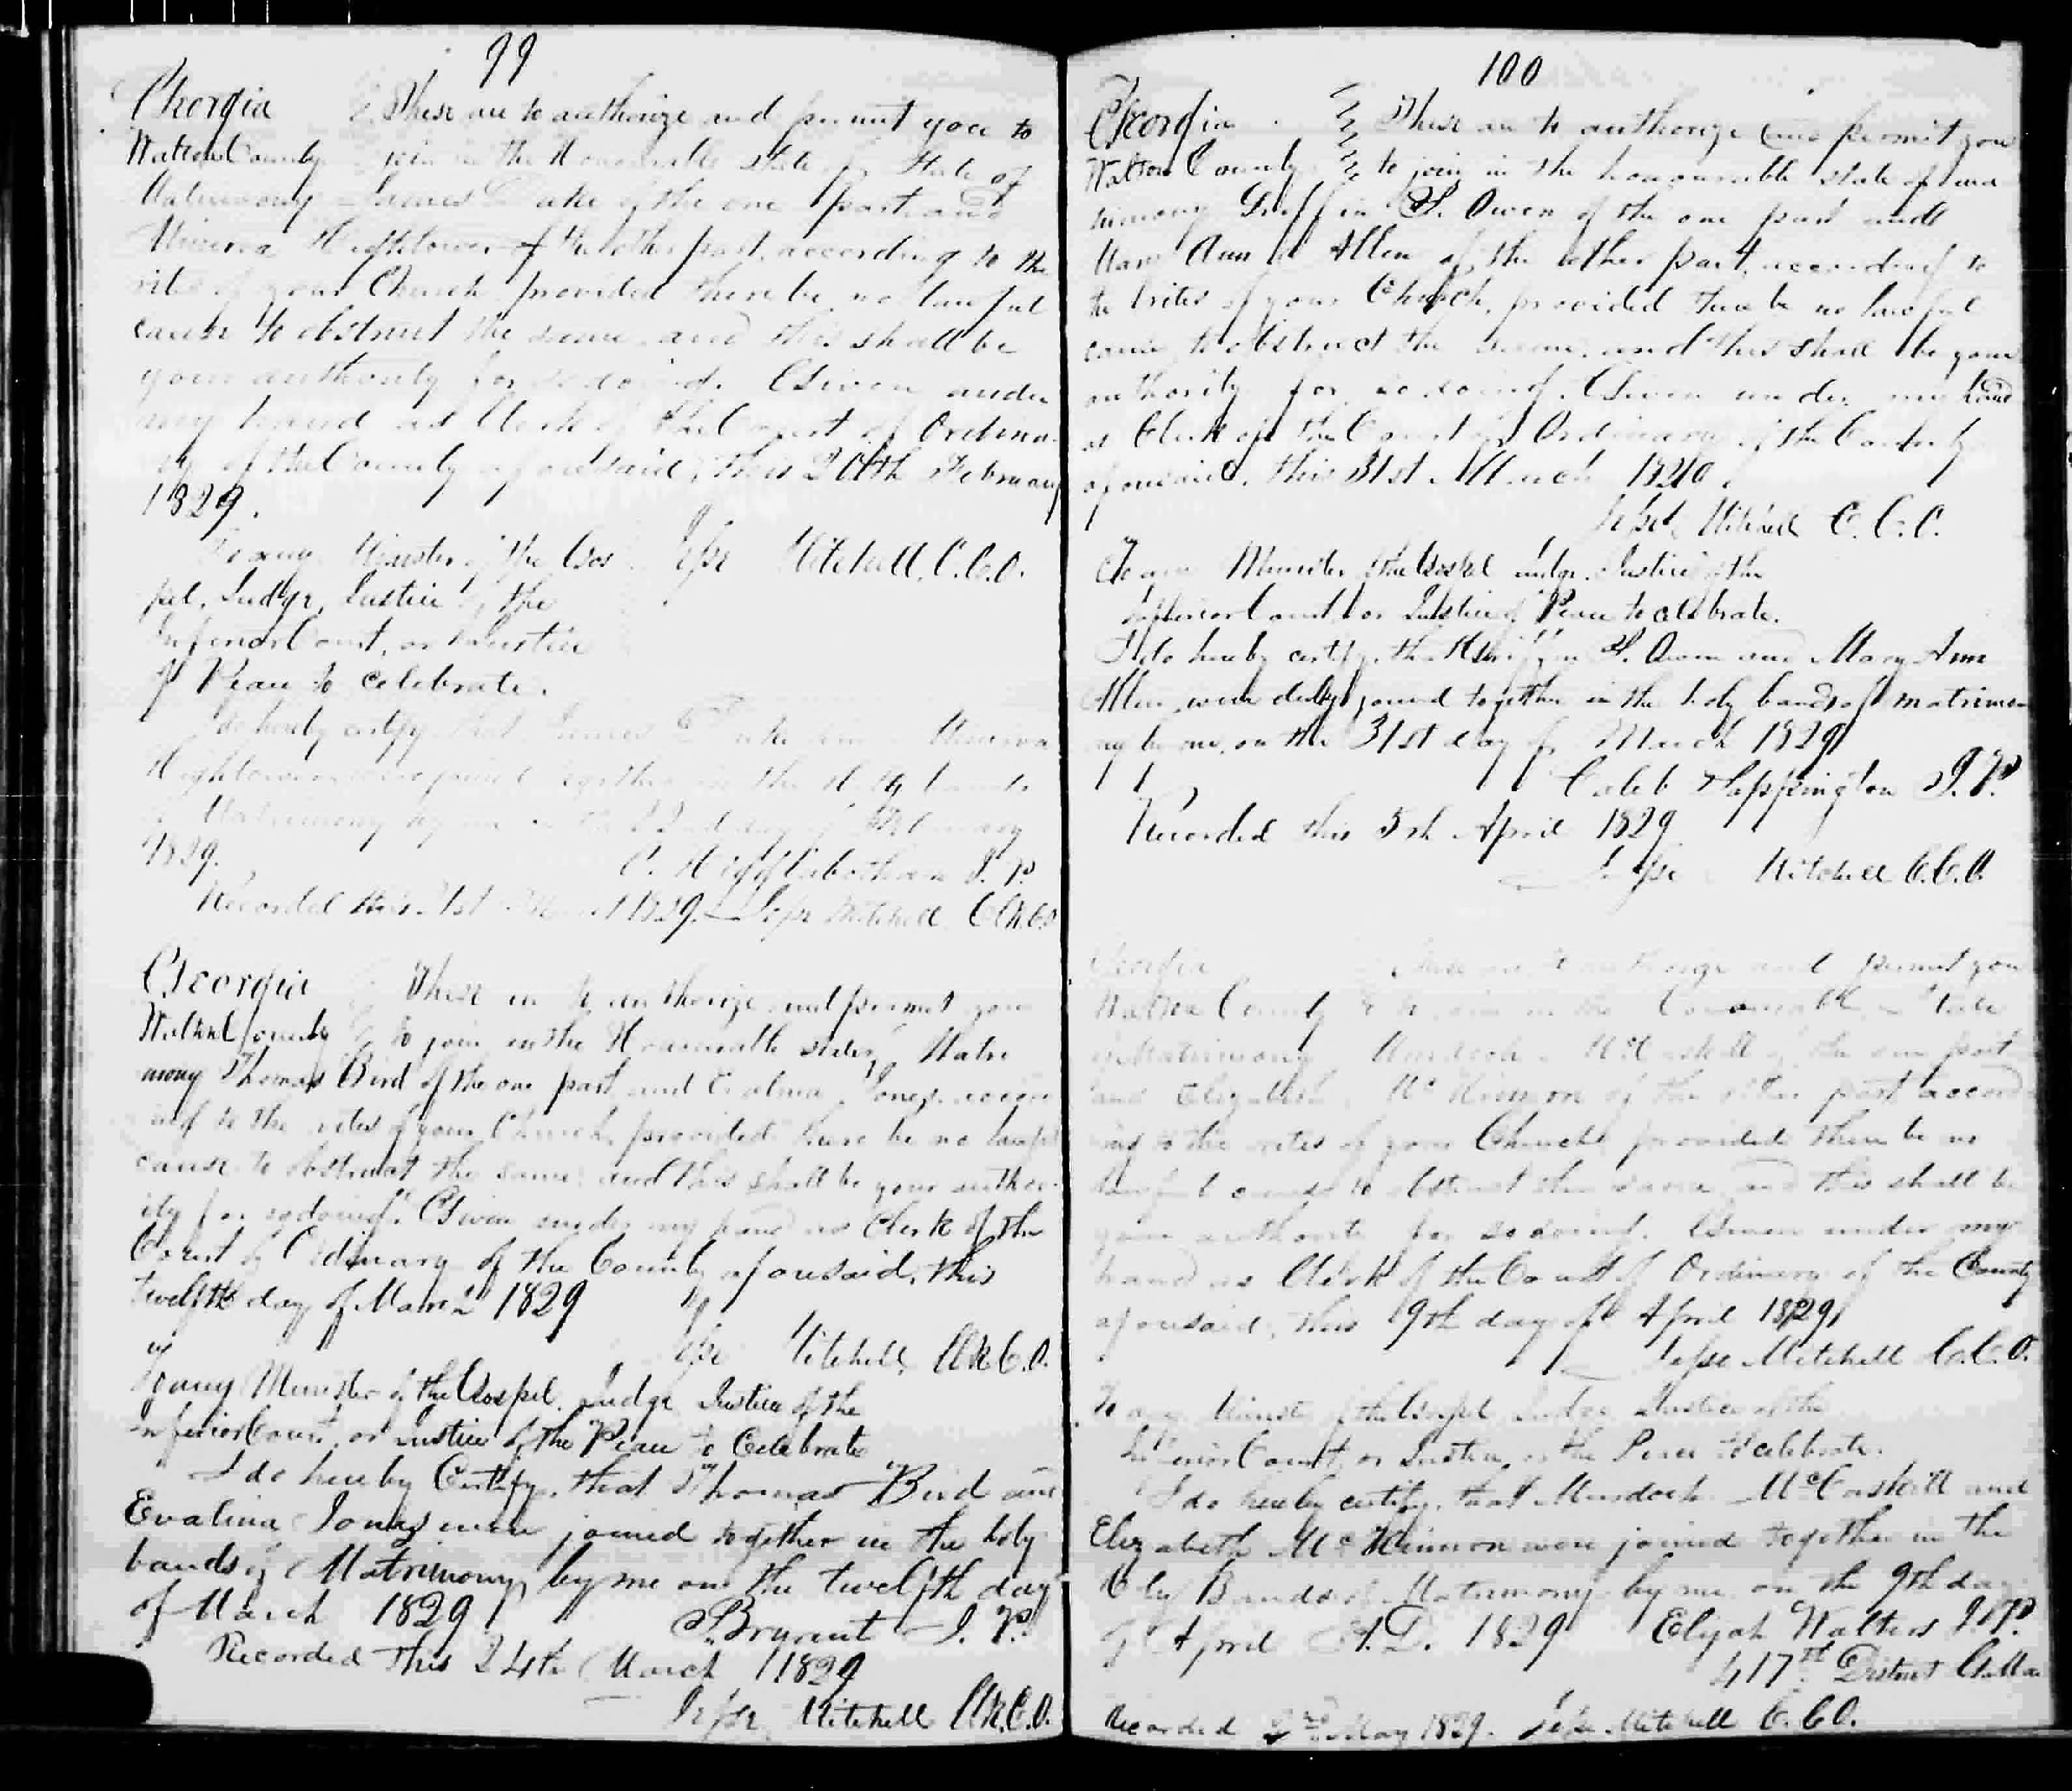 99
Georgia These are to authorize and permit you to
Walton County join in the Honourable state of State of
Matrimony James Lake of the one part and
Minerva Hightower of the other part, according to the
rites of your Church, provided there be no lawful
cause to obstruct the same and this shall be
your authority for so doing. Given under
my hand as Clerk of the Court of Ordina
ry of the County aforesaid, this 20th February
1829.
To any Minister of the Gos Jesse Mitchell, C.C.O.
pel, Judge, Justice of the
Inferior Court, or Justice
of Peace to celebrate.
I do hereby certify that James Lake and Minerva
Hightower were joined together in the Holy bands
of Matrimony by me on the 22d day of February
1829. C. Higginbotham J. P.
Recorded this 1st March 1829. Jesse Mitchell Clk C.O
Georgia These are to authorize and permit you
Walton County to join in the Honourable state of Matri
mony Thomas Bird of the one part and Evalina Jones accor
ing to the rites of your Church, provided there be no lawful
cause to obstruct the same, and this shall be your author
ity for so doing. Given under my hand as Clerk of the
Court of Ordinary of the County aforesaid, this
twelfth day of March 1829
Jesse Mitchell, Clk C.O.
To any Minister of the Gospel, Judge Justice of the
Inferior Court, or Justice of the Peace to Celebrate
I do hereby Certify, that Thomas Bird and
Evalina Jones were joined together in the holy
bands of Matrimony, by me on the twelfth day
of March 1829 Bryant J. P.
Recorded This 24th March 1829
Jesse Mitchell Clk.C.O.
100
Georgia These are to authorize and permit you
Walton County to join in the honourable state of ma
trimony Griffin P. Owen of the one part and
Mary Ann Allen of the other part, according to
the rites of your Church, provided there be no lawful
cause to obstruct the same, and this shall be your
authority for so doing. Given under my hand
as Clerk of the Court of Ordinary of the County
aforesaid, this 31st March 1829.
Jesse Mitchell C.C.O.
To any Minister of the Gospel Judge, Justice of the
Inferior Court or Justice of Peace to celebrate.
I do hereby certify, that Griffin P. Owen and Mary Ann
Allen were duly joined together in the holy bands of matrimo
ny by me, on the 31st day of March 1829
Caleb Happington J.P.
Recorded this 5th April 1829
Jesse Mitchell C.C.O.
Georgia These are to authorize and permit you
Walton County to join in the Honourable State
of Matrimony Murdoch McCaskill of the one part
and Elizabeth McKinnon of the other part accord
ing to the rites of your Church provided there be no
lawful cause to obstruct the same and this shall be
your authority for so doing. Given under my
hand as Clerk of the Court of Ordinary of the County
aforesaid, this 9th day of April 1829
Jesse Mitchell C.C.O.
To any Minister of the Gospel Judge Justice of the
Inferior Court, or Justice of the Peace to celebrate.
I do hereby certify, that Murdoch McCaskill and
Elizabeth McKinnon were joined together in the
Holy Bands of Matrimony by me on the 9th day
of April A.D. 1829 Elijah Walters J.P.
417th District G.Ma
Recorded 2nd May 1829. Jesse Mitchell C.C.O.